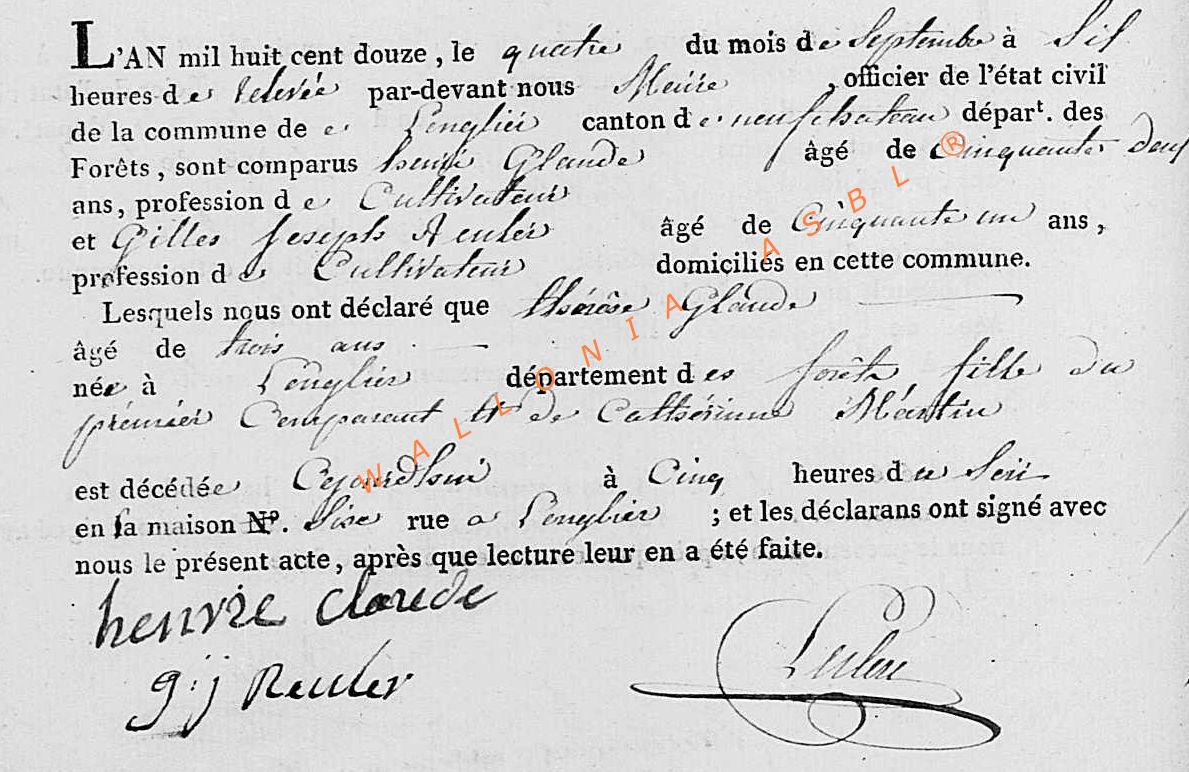 L'AN mil huit cent douze, le quatre du mois de Septembre à Six
heures de relevée par-devant nous Maire, officier de l'état civil
de la commune de Longlier canton de neufchateau départ. des
Forêts, sont comparus henri Glaude âgé de Cinquante deux
ans, profession de Cultivateur
et Gilles Joseph Reuler âgé de Cinquante un ans,
profession de Cultivateur domiciliés en cette commune.
Lesquels nous ont déclaré que thérèse Glaude
âgé de trois ans
née à Longlier département des forêts fille du
prémier Comparant et de Cathérinne Martin
est décédée Cejourdhui à Cinq heures du Soir
en sa maison Nº. Sise rue a Longlier ; et les déclarans ont signé avec
nous le présent acte, après que lecture leur en a été faite.
henrie Claude
g:j Reuler
WALLONIA ASBL ®